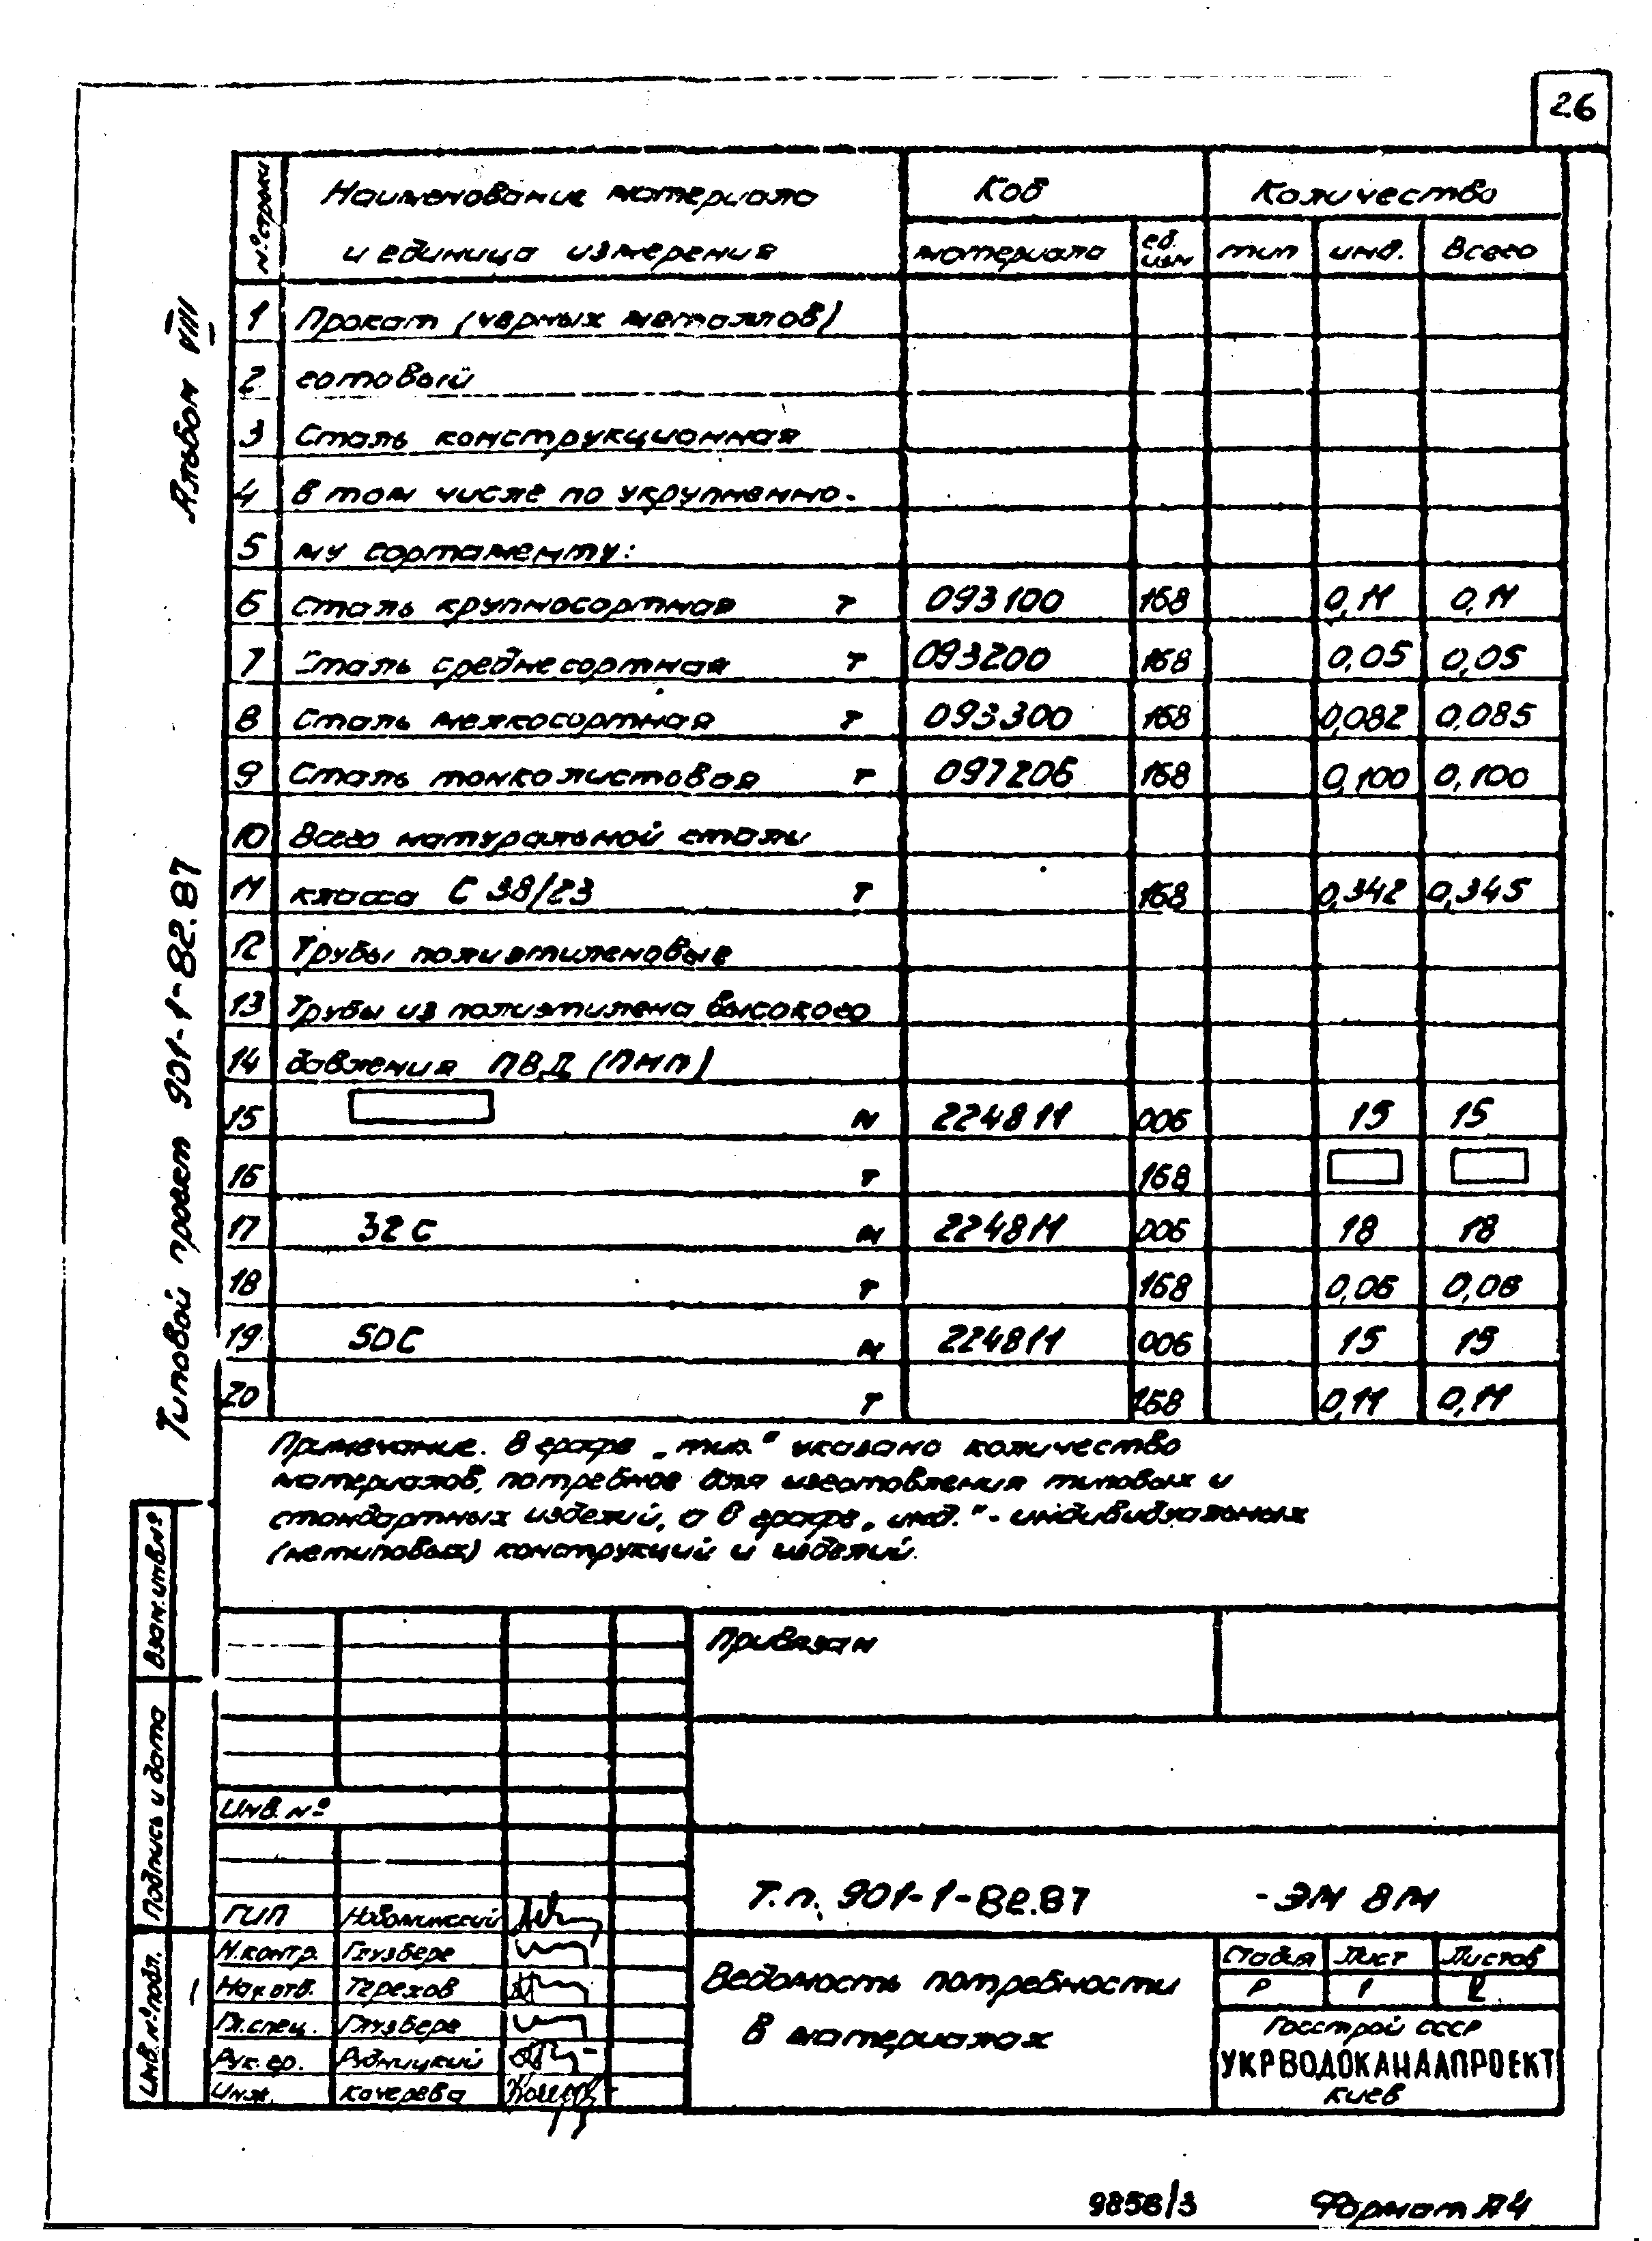 26
№ строки
Наименование материала
и единица измерения
Код
Количество
материала
ед. изм
тип
инд.
Всего
1 Прокат (черных металлов)
2 готовый
3 Сталь конструкционная
4 в том числе по укрупненно-
5 му сортаменту:
6 Сталь крупносортная т 093100 168 0,11 0,11
7 Сталь среднесортная т 093200 168 0,05 0,05
8 Сталь мелкосортная т 093300 168 0,082 0,085
9 Сталь тонколистовая т 097206 168 0,100 0,100
10 Всего натуральной стали
11 класса С 38/23 т 168 0,342 0,345
12 Трубы полиэтиленовые
13 Трубы из полиэтилена высокого
14 давления ПВД (ПНП)
15 м 224811 006 15 15
16 т 168
17 32С м 224811 006 18 18
18 т 168 0,06 0,06
19 50С м 224811 006 15 15
20 т 168 0,11 0,11
Примечание. В графе „тип.“ указано количество
материалов, потребное для изготовления типовых и
стандартных изделий, а в графе „инд.“ - индивидуальных
(нетиповых) конструкций и изделий.
Альбом VIII
Типовой проект 901-1-82.87
Взам. инв. №
Подпись и дата
Инв. № подл.
Привязан
Инв. №
Т.п. 901-1-82.87 -ЭМ ВМ
ГИП
Н.контр. Глузберг
Нач.отд. Терехов
Гл.спец. Глузберг
Рук.гр. Рудницкий
Инж. Качерева
Ведомость потребности
в материалах
Стадия Лист Листов
Р 1 2
Госстрой СССР
УКРВОДОКАНАЛПРОЕКТ
Киев
9856/3
Формат А4